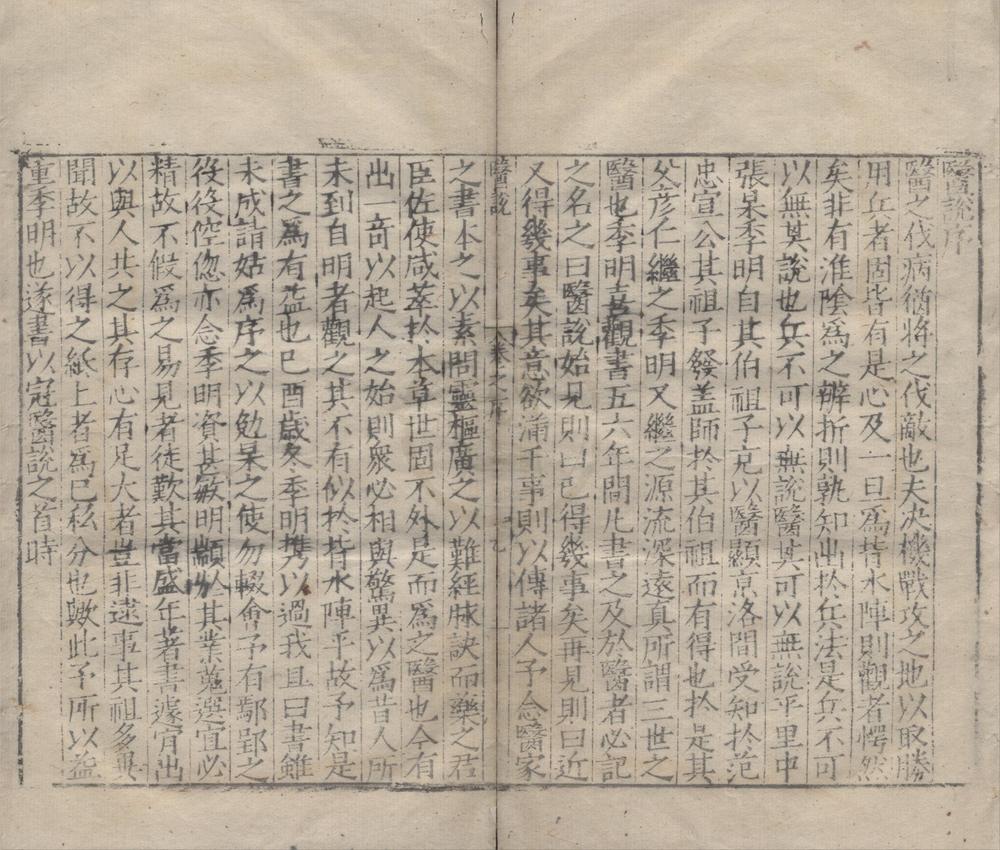 醫說序
醫之伐病猶將之伐敵也夫决機戰攻之地以取勝
用兵者固皆有是心及一旦爲背水陣則觀者愕然
矣非有淮陰爲之辨折則孰知出於兵法是兵不可
以無其說也兵不可以無說醫其可以無說乎里中
張杲季明自其伯祖子充以醫顯京洛間受知於范
忠宣公其祖子發盖師於其伯祖而有得也於是其
父彦仁繼之季明又繼之源流深遠真所謂三世之
醫也季明喜觀書五六年間凡書之及於醫者必記
之名之曰醫說始見則曰已得幾事矣再見則曰近
又得幾事矣其意欲滿千事則以傳諸人予念醫家
醫說 卷之序 乙
之書本之以素問靈樞廣之以難經脉訣而藥之君
臣佐使咸萃於本草世固不外是而爲之醫也今有
出一竒以起人之始則衆必相與驚異以爲昔人所
未到自明者觀之其不有似於背水陣乎故予知是
書之爲有益也已酉歲冬季明携以過我且曰書雖
未成請姑爲序之以勉杲之使勿輟會予有鄢郢之
役役倥偬亦念季明資其敏明顓於其業蒐選宜必
精故不假爲之易見者徒歎其當盛年著書遽肯出
以與人共之其存心有足大者豈非遠事其祖多異
聞故不以得之紙上者爲已私分也歟此予所以益
重季明也遂書以冠醫說之首時